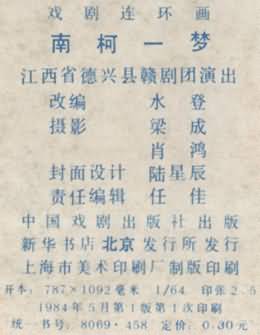 戏剧连环画
南柯一梦
江西省德兴县赣剧团演出
改编 水登
摄影 梁成
肖鸿
封面设计 陆星辰
责任编辑 任佳
中国戏剧出版社出版
新华书店北京发行所发行
上海市美术印刷厂制版印刷
开本：787×1092毫米 1/64 印张2.5
1984年5月第1版第1次印刷
统一书号：8069·458 定价：0.30元